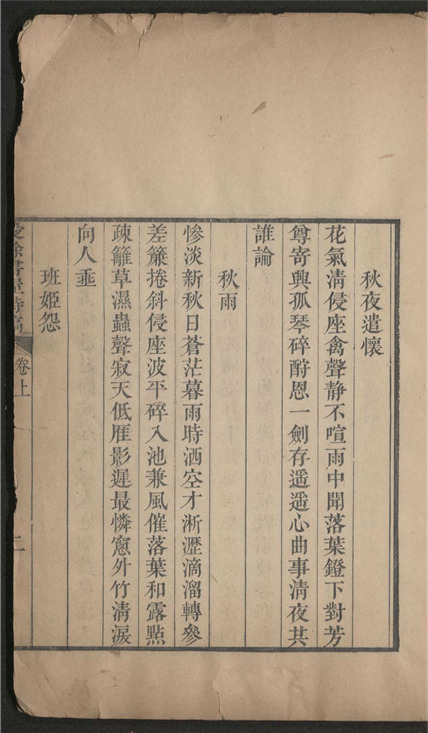 秋夜遣懷
花氣清侵座禽聲静不喧雨中聞落葉鐙下對芳
尊寄興孤琴碎酧恩一劍存遥遥心曲事清夜共
誰論
秋雨
惨淡新秋日蒼茫暮雨時洒空才淅瀝滴溜轉參
差簾捲斜侵座波平碎入池兼風催落葉和露㸃
疎籬草濕蟲聲寂天低雁影遲最憐窻外竹清淚
向人垂
班姬怨
餘書屋詩稿
卷上
二